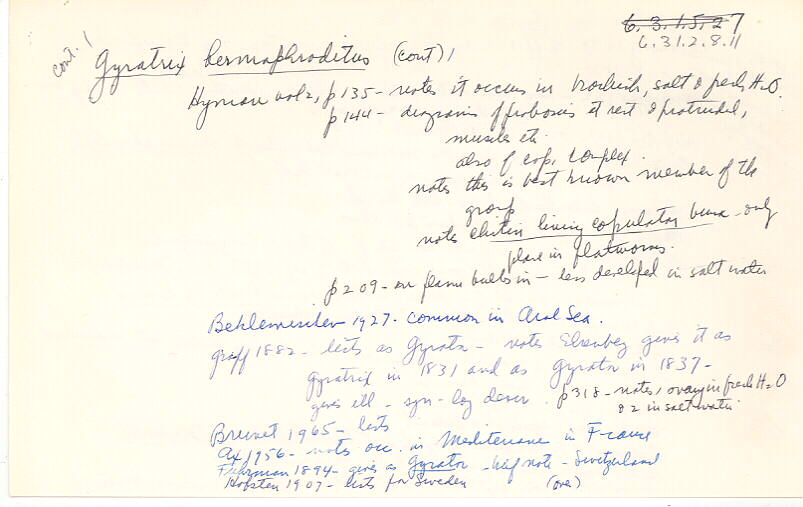 6.3.1.5.27
6.31.2.8.11
cont. 1
Gyratrix hermaphroditus (cont) 1
Hyman vol 2, p 135 - notes it occurs in brackish, salt & fresh H2O.
p 144 - diagrams of proboscis at rest & protruded,
muscles etc.
also of cop. complex.
notes this is best known member of the
group
notes chitin lining copulatory bursa - only
place in flatworms.
p 209 - on flame bulbs in - less developed in salt water
Beklemischev 1927 - common in Aral Sea.
Graff 1882 - lists as Gyrator - notes Ehrenberg gives it as
Gyratrix in 1831 and as Gyrator in 1837 -
gives ill - syn - log descr. p 318 - notes 1 ovary in fresh H2O
& 2 in salt water
Brunet 1965 - lists
Ax 1956 - notes occ. in Mediterrane in France
Fuhrman 1894 - gives as Gyrator - brief note - Switzerland
Hofsten 1907 - lists for Sweden (over)